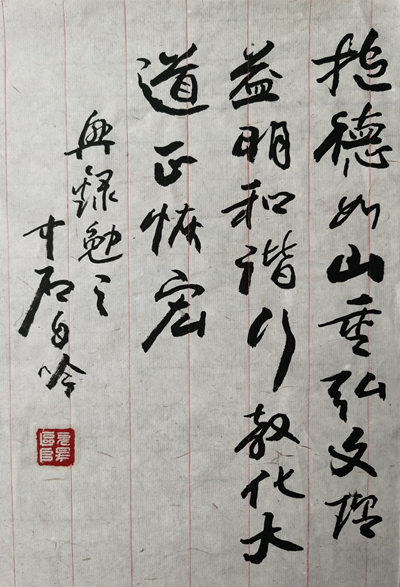 抱德如山重弘文增
益明和谐行教化大
道正恢宏
録勉之
寸石自吟